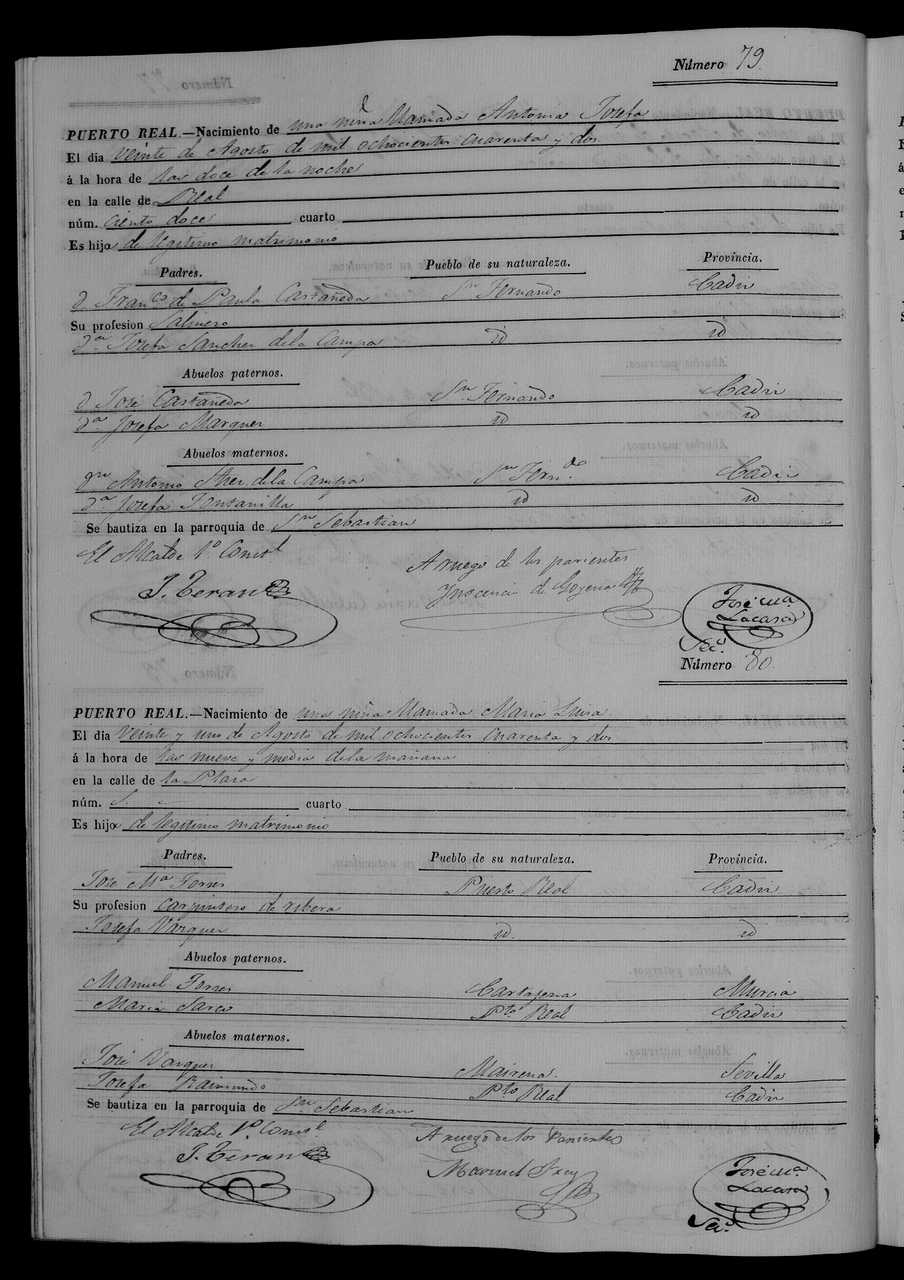 Número 79.
PUERTO REAL.—Nacimiento de una niña llamada Antonia Josefa
El dia veinte de Agosto de mil ochocientos cuarenta y dos
á la hora de las doce de la noche
en la calle de Real
núm. ciento doce cuarto
Es hijo de legitimo matrimonio
Padres. Pueblo de su naturaleza. Provincia.
Dn Franco de Paula Castañeda Sn Fernando Cadiz
Su profesion Salinero
Da Josefa Sanchez de la Campa id id
Abuelos paternos.
Dn José Castañeda Sn Fernando Cadiz
Da Josefa Marquez id id
Abuelos maternos.
Dn Antonio Shez de la Campa Sn Fern.do Cadiz
Da Josefa Fontanilla id id
Se bautiza en la parroquia de Sn Sebastian
El Alcalde 1º Const.l A ruego de los parientes
J. Teran Inocencio de Goyena José Ma. Lacasa
Sec.
Número 80.
PUERTO REAL.—Nacimiento de una niña llamada Maria Luisa
El dia veinte y uno de Agosto de mil ochocientos cuarenta y dos
á la hora de las nueve y media de la mañana
en la calle de la Plaza
núm. S. cuarto
Es hijo de legitimo matrimonio
Padres. Pueblo de su naturaleza. Provincia.
José Ma Torres Puerto Real Cadiz
Su profesion carpintero de ribera
Josefa Vazquez id. id
Abuelos paternos.
Manuel Torres Cartagena Murcia
Maria Pto Real Cadiz
Abuelos maternos.
José Vazquez Mairena. Sevilla
Josefa Raimundo Pto Real Cadiz
Se bautiza en la parroquia de Sn Sebastian
El Alcalde 1º Const.l A ruego de los Parientes
J. Teran Manuel José Ma. Lacasa
Sec.